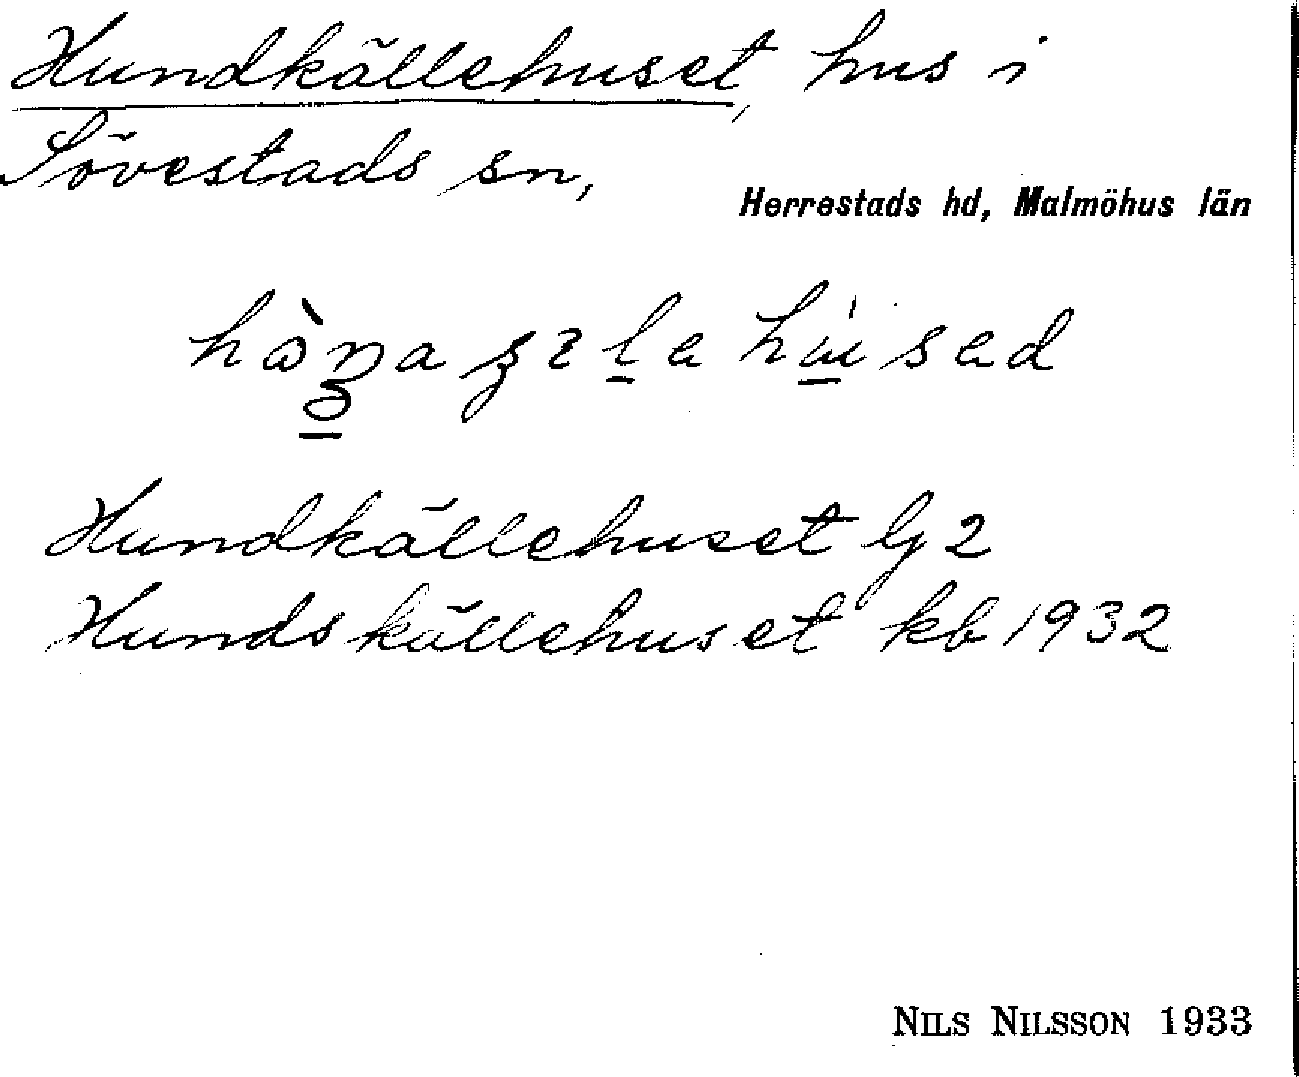 Hundkällehuset, hus i
Sövestads sn,
Herrestads hd, Malmöhus län
Hundkällehuset Gj 2
Hundskällehuset kb 1932
NILS NILSSON 1933